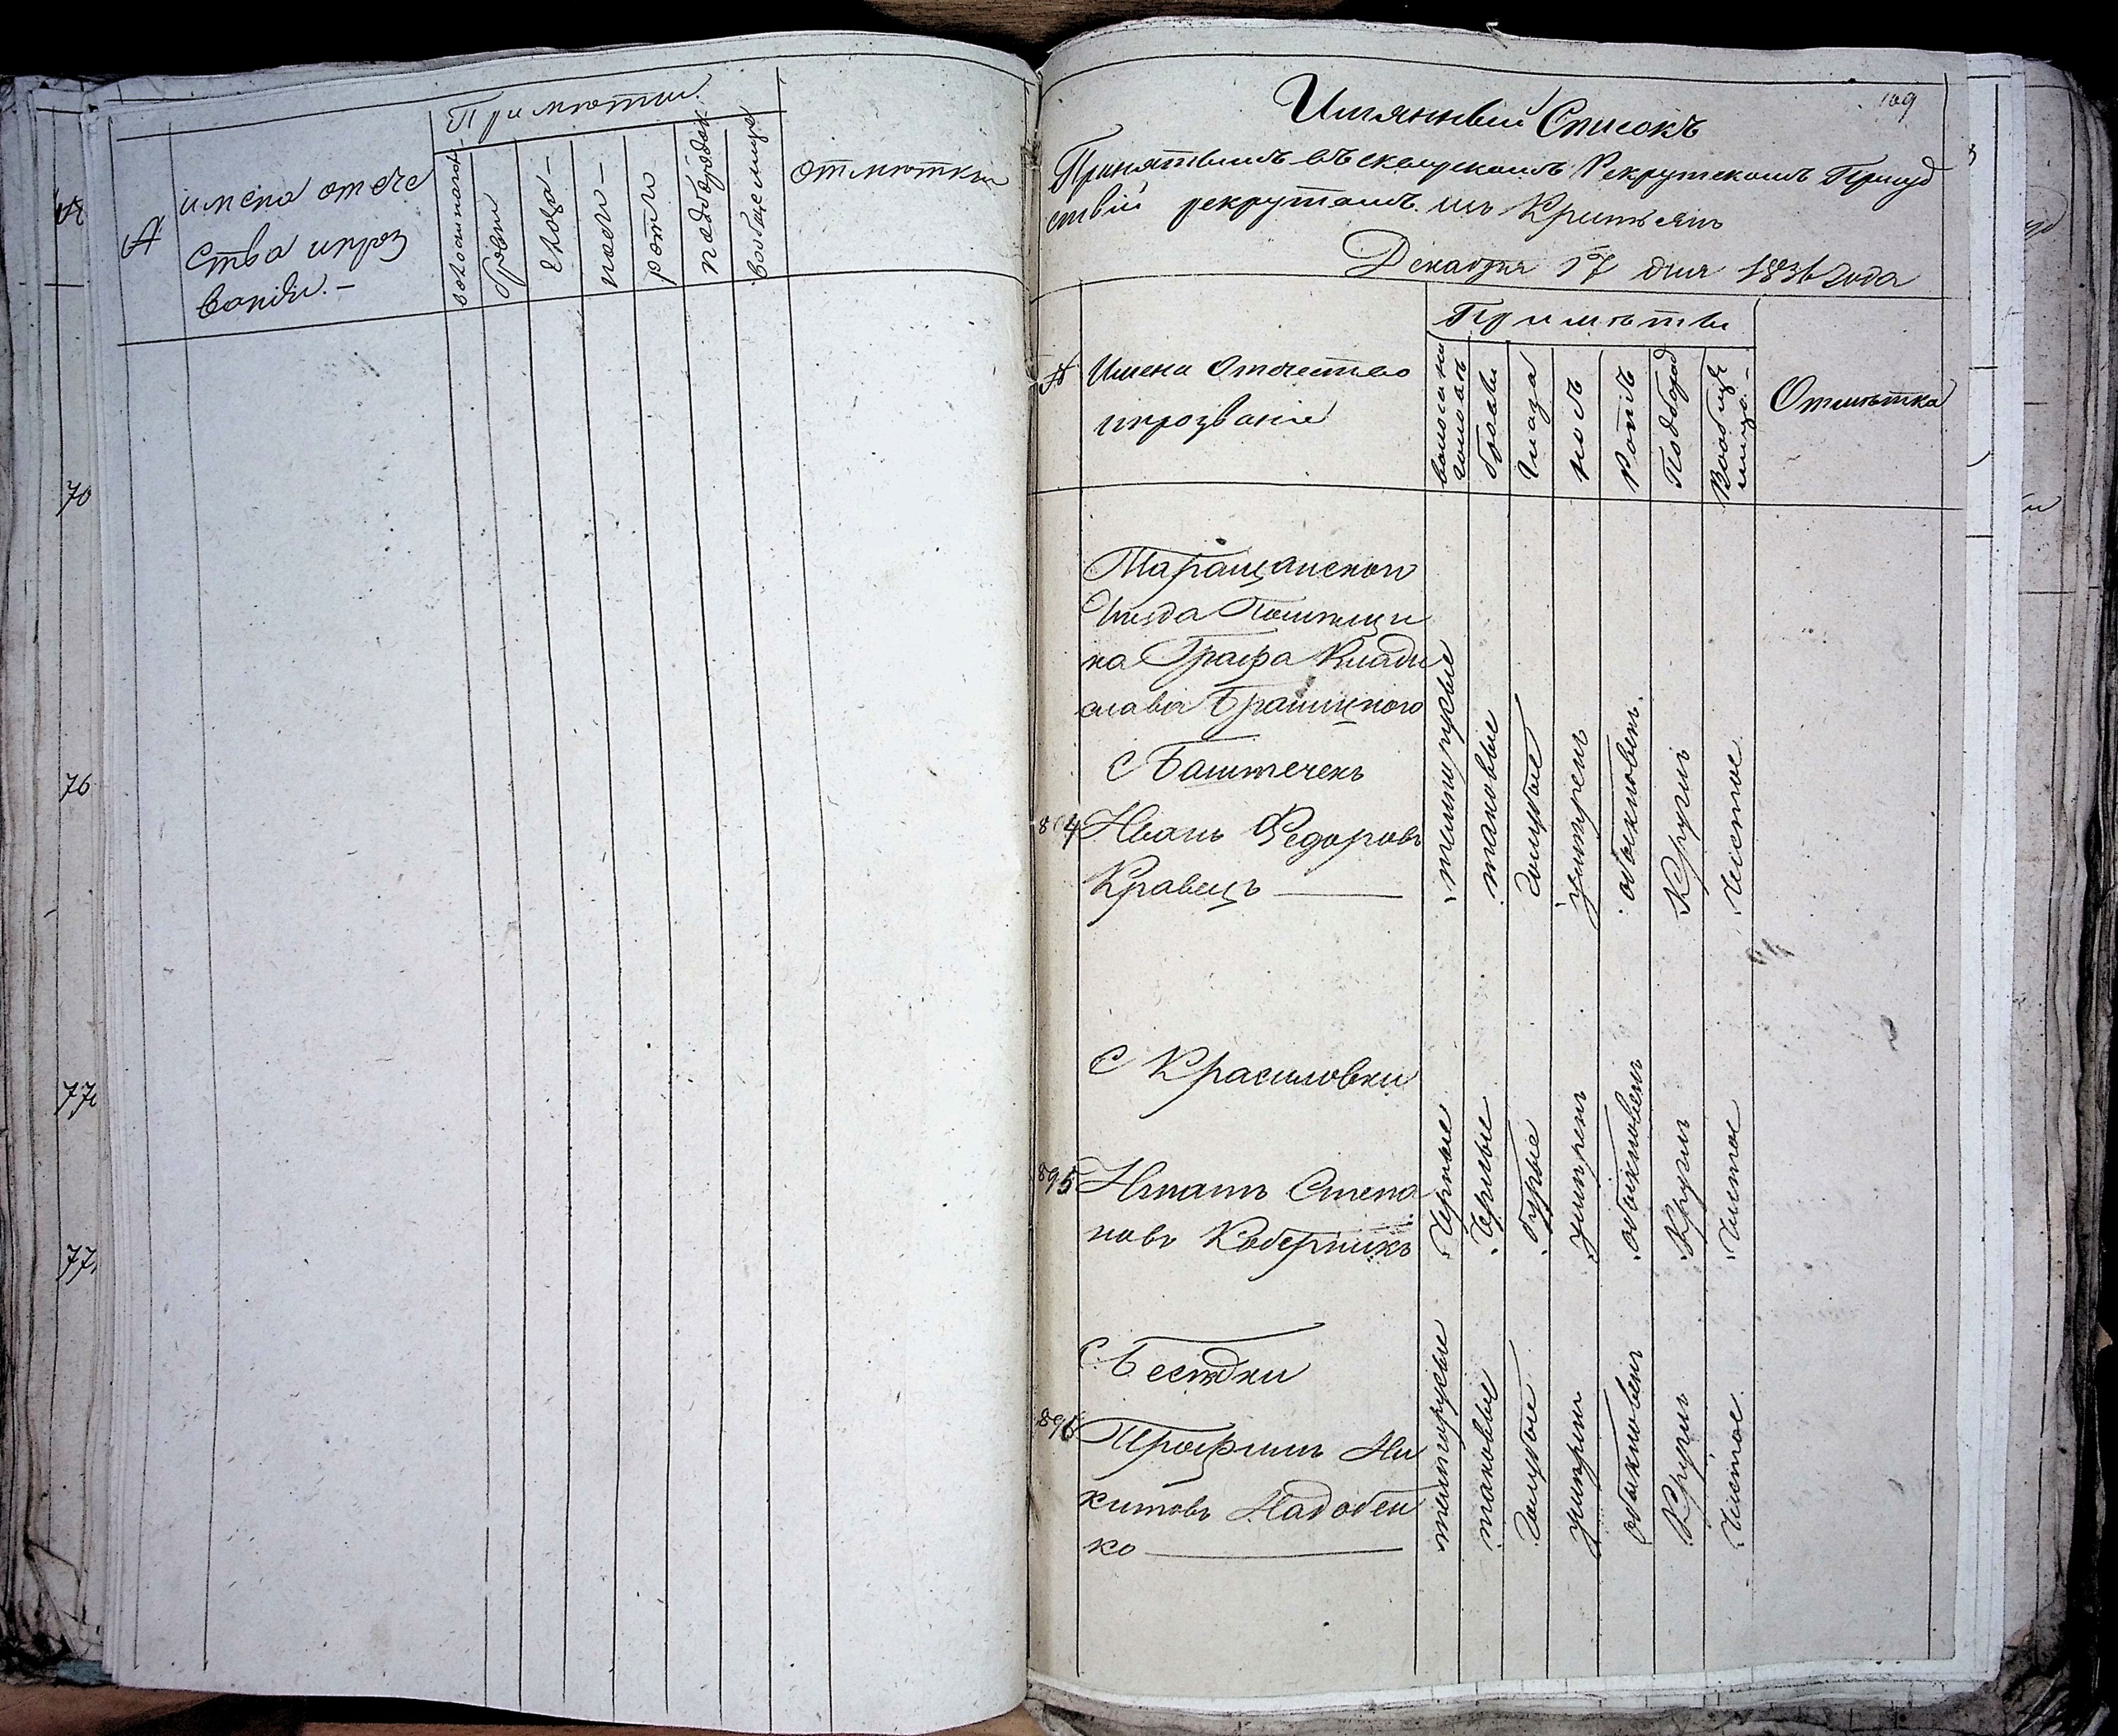 70
76
77
77
Примѣти
№
имена отече
ства и проз
ваніи. –
брови
глаза –
носи –
роти
подбородок
вообще лице
отмѣтки
109
Имянный Списокъ
Принятымъ въ Рекрутскомъ Присуд
ствіи рекрутамъ изъ Крестьянъ
Декабря 17 дня 1836 года
№
Имена Отчество
и прозваніе
Примѣты
волоси на
головѣ
брови
Глаза
носъ
Ротъ
Подбород
Вообще
лицо –
Отмѣтка
Таращанского
Уѣзда Помѣщи
ка Графа Влади
слава Браницкого
С Баштечекъ
894 Иванъ Федоровъ
Кравецъ
темнорусые
таковые
Голубые
умѣрен
обыкновен.
Кругл
Чистое
С Красиловки
895 Игнатъ Степа
новъ Коберникъ
Черные
Черные
бурые
умѣрен
обыкновен
Кругл
Чистое
С Бесѣдки
896 Трофимъ Ни
китовъ Надобен
ко
темнорусые
таковые
Голубые
умѣрен
обыкновен
Кругл
Чистое